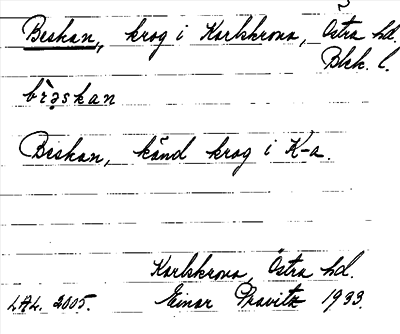 Beskan, krog i Karlskrona, Östra hd.
Blek. l.
bèskan
Beskan, känd krog i K-a.
Karlskrona, Östra hd.
LAL. 2005. Einar Kravitz 1933.